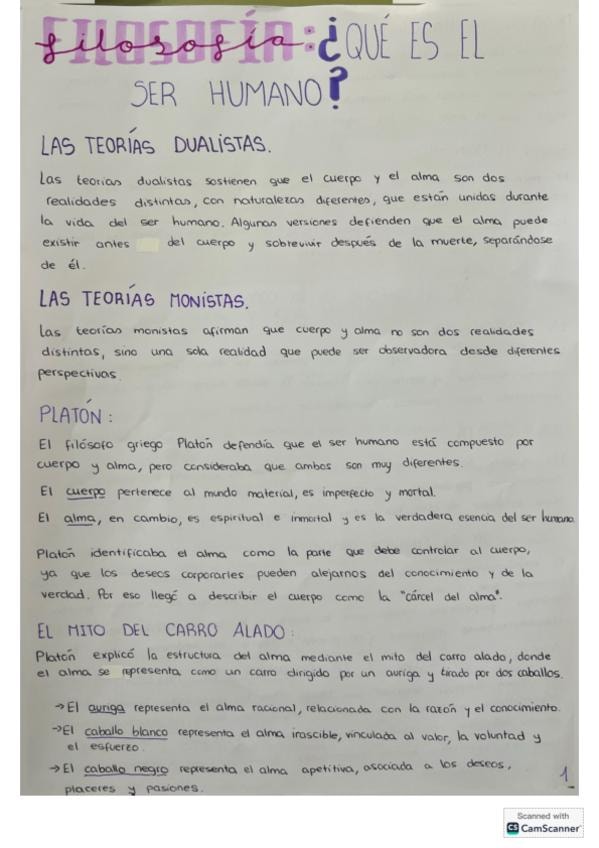 filosofía: ¿QUÉ ES EL
SER HUMANO?
LAS TEORÍAS DUALISTAS.
Las teorías dualistas sostienen que el cuerpo y el alma son dos
realidades distintas, con naturalezas diferentes, que están unidas durante
la vida del ser humano. Algunas versiones defienden que el alma puede
existir antes del cuerpo y sobrevivir después de la muerte, separándose
de él.
LAS TEORÍAS MONISTAS.
Las teorías monistas afirman que cuerpo y alma no son dos realidades
distintas, sino una sola realidad que puede ser observadora desde diferentes
perspectivas.
PLATÓN:
El filósofo griego Platón defendía que el ser humano está compuesto por
cuerpo y alma, pero consideraba que ambos son muy diferentes.
El cuerpo pertenece al mundo material, es imperfecto y mortal.
El alma, en cambio, es espiritual e inmortal y es la verdadera esencia del ser humano.
Platón identificaba el alma como la parte que debe controlar al cuerpo,
ya que los deseos corporarles pueden alejarnos del conocimiento y de la
verdad. Por eso llegó a describir el cuerpo como la "cárcel del alma".
EL MITO DEL CARRO ALADO:
Platón explicó la estructura del alma mediante el mito del carro alado, donde
el alma se representa como un carro dirigido por un auriga y tirado por dos caballos.
→El auriga representa el alma racional, relacionada con la razón y el conocimiento.
→El caballo blanco representa el alma irascible, vinculada al valor, la voluntad y
el esfuerzo.
→El caballo negro representa el alma apetitiva, asociada a los deseos,
placeres y pasiones.
1
Scanned with
CS CamScanner